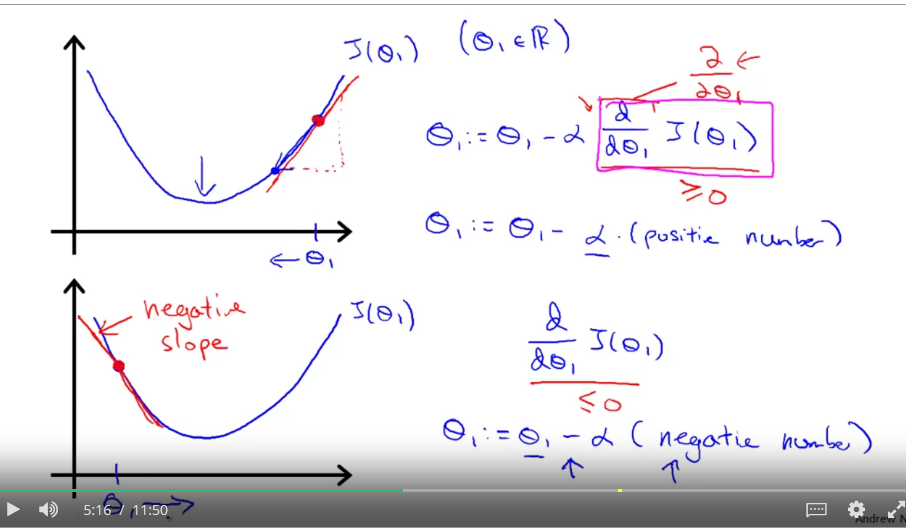 J(θ₁) (θ₁ ∈ ℝ)
∂/∂θ₁ ←
θ₁ := θ₁ - α d/dθ₁ J(θ₁)
≥ 0
θ₁ := θ₁ - α · (positie number)
← θ₁
negative
slope
J(θ₁)
d/dθ₁ J(θ₁)
≤ 0
θ₁ := θ₁ - α (negatie number)
θ₁ →
5:16 / 11:50
Andrew N